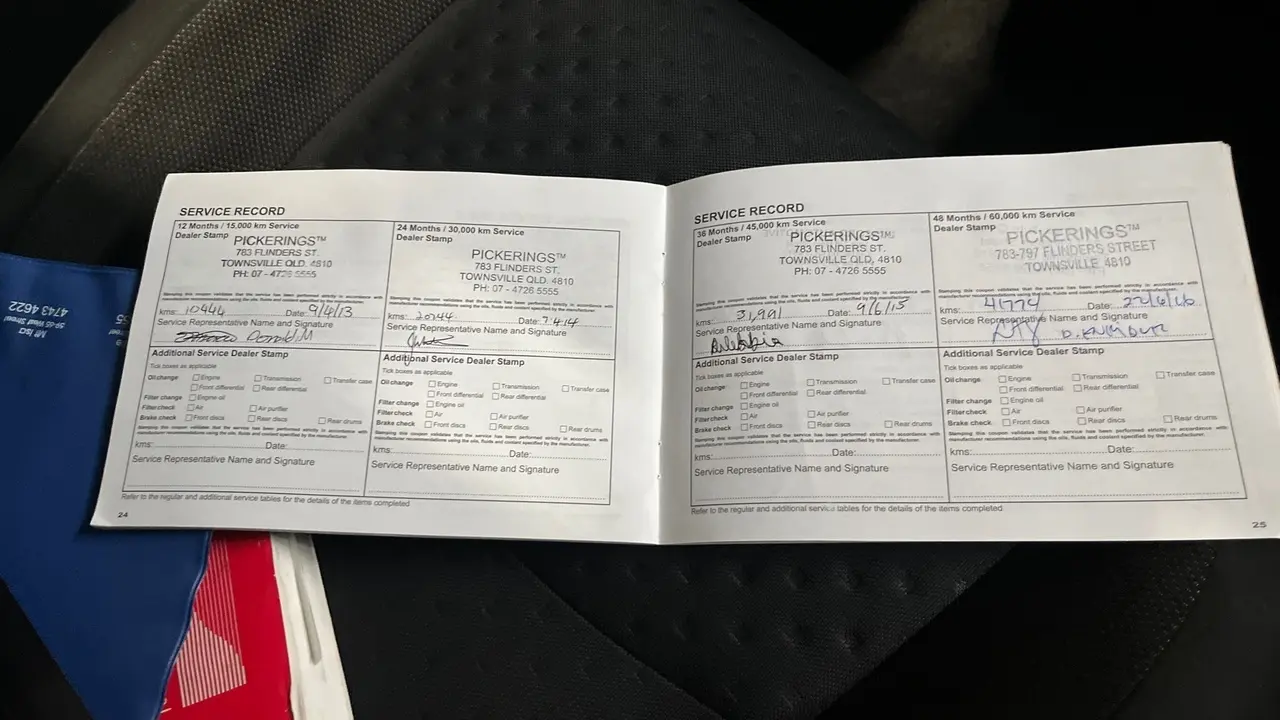 SERVICE RECORD
12 Months / 15,000 km Service
Dealer Stamp
PICKERINGS™
783 FLINDERS ST.
TOWNSVILLE QLD. 4810
PH: 07 - 4726 5555
Stamping this coupon validates that the service has been performed strictly in accordance with
manufacturer recommendations using the oils, fluids and coolant specified by the manufacturer.
kms: 10444 Date: 9/4/13
Service Representative Name and Signature
Donald M
Additional Service Dealer Stamp
Tick boxes as applicable
Oil change Engine Transmission Transfer case
Front differential Rear differential
Filter change Engine oil
Filter check Air Air purifier
Brake check Front discs Rear discs Rear drums
Stamping this coupon validates that the service has been performed strictly in accordance with
manufacturer recommendations using the oils, fluids and coolant specified by the manufacturer.
kms: Date:
Service Representative Name and Signature
24 Months / 30,000 km Service
Dealer Stamp
PICKERINGS™
783 FLINDERS ST.
TOWNSVILLE QLD. 4810
PH: 07 - 4726 5555
Stamping this coupon validates that the service has been performed strictly in accordance with
manufacturer recommendations using the oils, fluids and coolant specified by the manufacturer.
kms: 20344 Date: 7.4.14
Service Representative Name and Signature
Additional Service Dealer Stamp
Tick boxes as applicable
Oil change Engine Transmission Transfer case
Front differential Rear differential
Filter change Engine oil
Filter check Air Air purifier
Brake check Front discs Rear discs Rear drums
Stamping this coupon validates that the service has been performed strictly in accordance with
manufacturer recommendations using the oils, fluids and coolant specified by the manufacturer.
kms: Date:
Service Representative Name and Signature
Refer to the regular and additional service tables for the details of the items completed
24
SERVICE RECORD
36 Months / 45,000 km Service
Dealer Stamp
PICKERINGS™
783 FLINDERS ST.
TOWNSVILLE QLD, 4810
PH: 07 - 4726 5555
Stamping this coupon validates that the service has been performed strictly in accordance with
manufacturer recommendations using the oils, fluids and coolant specified by the manufacturer.
kms: 31,991 Date: 9/6/15
Service Representative Name and Signature
Additional Service Dealer Stamp
Tick boxes as applicable
Oil change Engine Transmission Transfer case
Front differential Rear differential
Filter change Engine oil
Filter check Air Air purifier
Brake check Front discs Rear discs Rear drums
Stamping this coupon validates that the service has been performed strictly in accordance with
manufacturer recommendations using the oils, fluids and coolant specified by the manufacturer.
kms: Date:
Service Representative Name and Signature
48 Months / 60,000 km Service
Dealer Stamp
PICKERINGS™
783-797 FLINDERS STREET
TOWNSVILLE 4810
Stamping this coupon validates that the service has been performed strictly in accordance with
manufacturer recommendations using the oils, fluids and coolant specified by the manufacturer.
kms: Date:
Service Representative Name and Signature
Additional Service Dealer Stamp
Tick boxes as applicable
Oil change Engine Transmission Transfer case
Front differential Rear differential
Filter change Engine oil
Filter check Air Air purifier
Brake check Front discs Rear discs Rear drums
Stamping this coupon validates that the service has been performed strictly in accordance with
manufacturer recommendations using the oils, fluids and coolant specified by the manufacturer.
kms: Date:
Service Representative Name and Signature
Refer to the regular and additional service tables for the details of the items completed
25
4743 4622